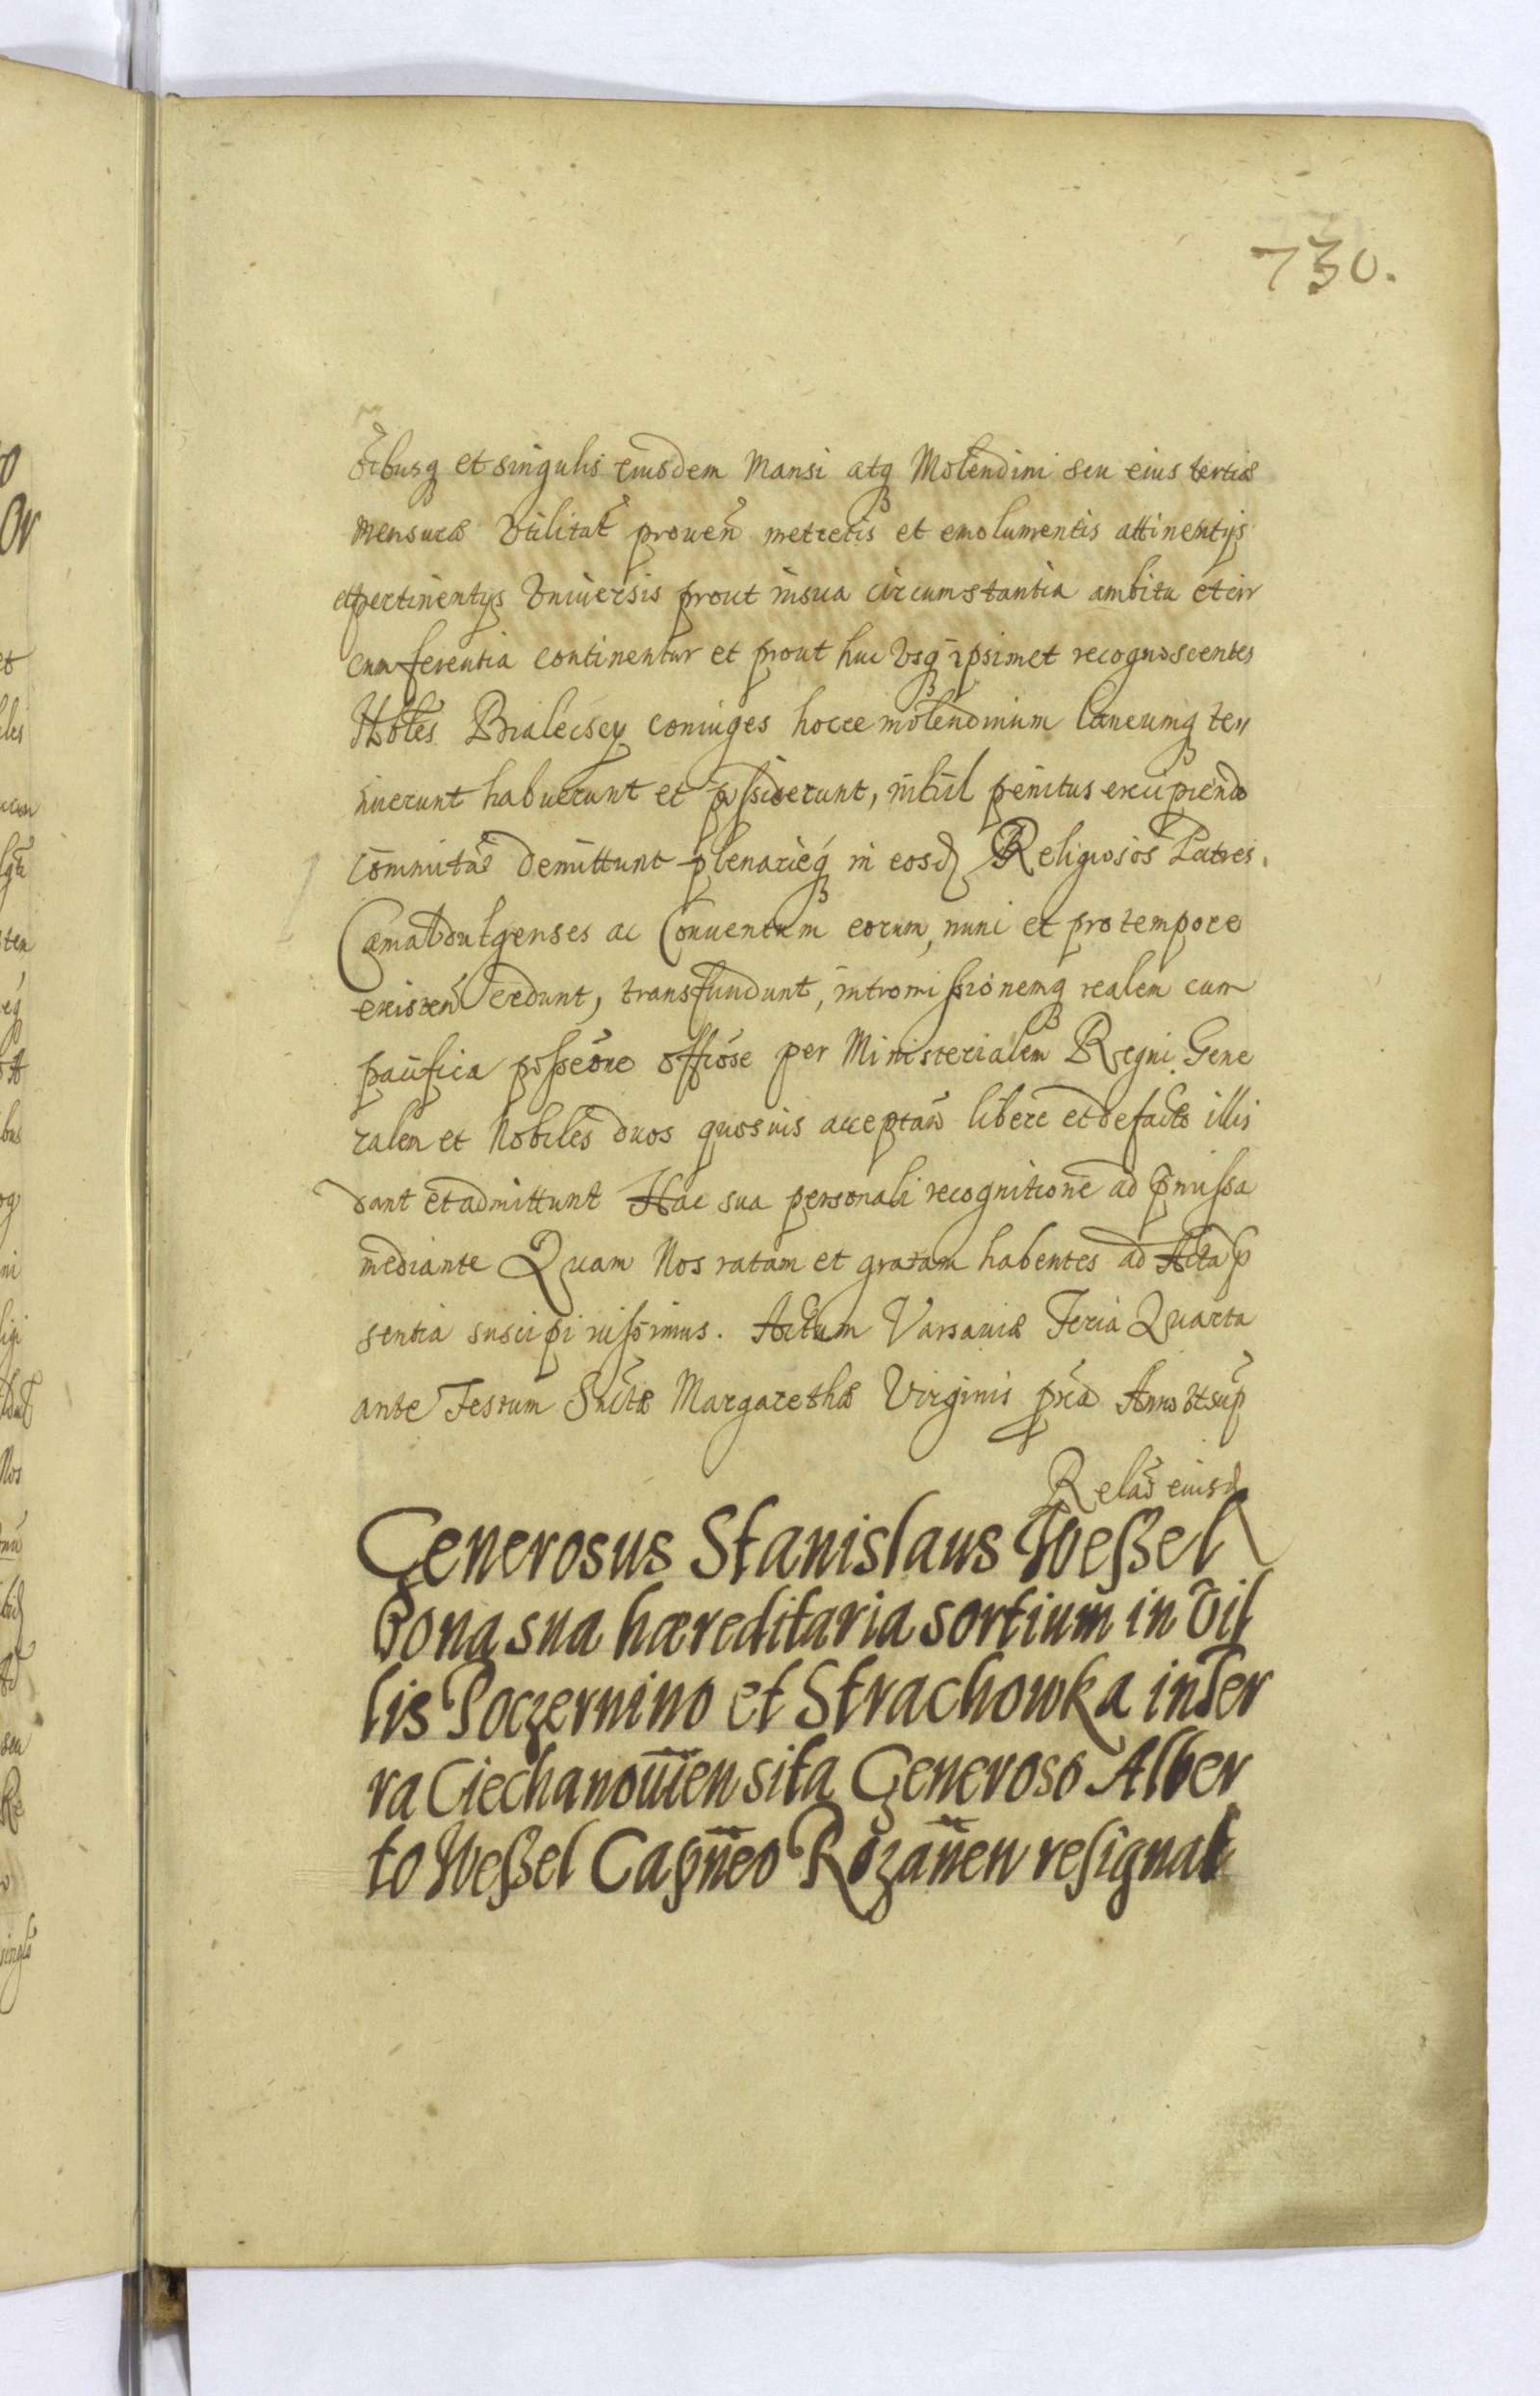 730.
oibusq et singulis eiusdem Mansi atq Molendini seu eius tertiæ
mensuræ Vtilitat prouen metretis et emolumentis attinentijs
et pertinentijs Vniuersis prout in sua circumstantia ambitu et cir
cumferentia continentur et prout huc Vsq ipsimet recognoscentes
Nobles Bialecscy coniuges hocce molendinum laneumq te//
nuerunt habuerunt et possiderunt, nihil penitus excipiendo
demittunt plenarieq in eosd Religiosos Patres
Camaldulgenses ac Conuentum eorum, nunc et pro tempore
existen cedunt, transfundunt, intromissionemq realem cum
pacifica posseone offiose per Ministerialem Regni Gene
ralem et Nobiles duos quosuis acceptan libere et de facto illis
dant et admittunt Hac sua personali recognitione ad pmissa
mediante Quam Nos ratam et gratam habentes ad Acta p
sentia suscipi iussimus. Actum Varsauiæ Feria Quarta
ante Festum Snctæ Margarethæ Virginis pxa Anno Vt sup
Relao eiusd
Generosus Stanislaus Weßel
Bona sua hæreditaria sortium in Vil
lis Poczernino et Strachowka in Ter
ra Ciechanouien sita Generoso Alber
to Weßel Capneo Rozanen resignat